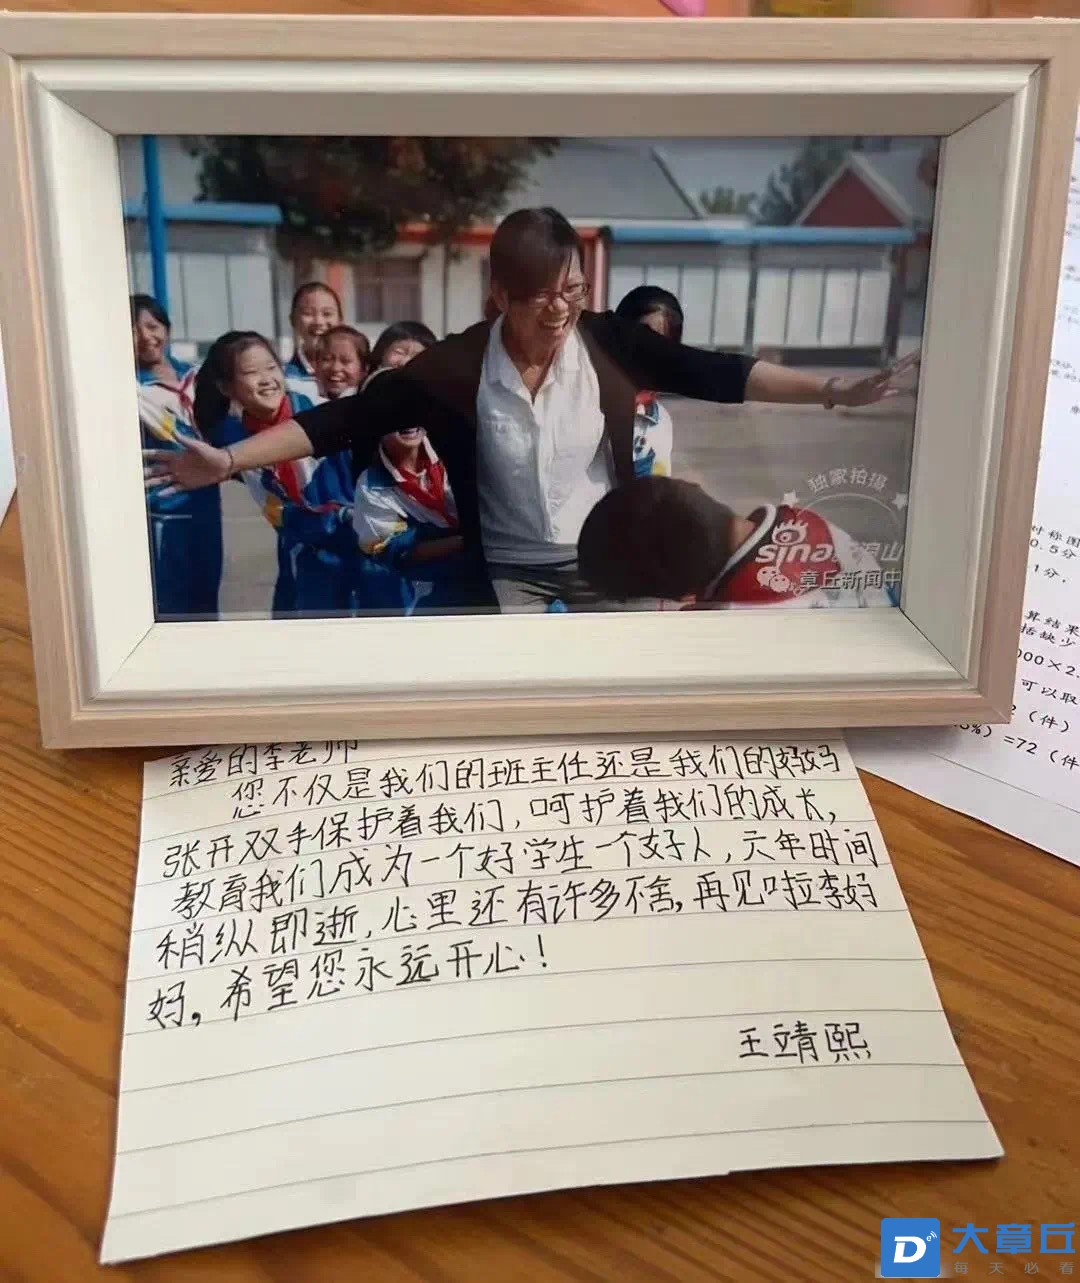 独家拍摄
sina
章丘新闻中
亲爱的李老师
您不仅是我们的班主任还是我们的妈妈
张开双手保护着我们,呵护着我们的成长,
教育我们成为一个好学生一个好人,六年时间
稍纵即逝,心里还有许多不舍,再见啦李妈
妈,希望您永远开心!
王靖熙
对称图
0.5分
1分,
算结果
括缺少
000×2.
可以取
(件)
%)=72(件
大章丘
每天必看